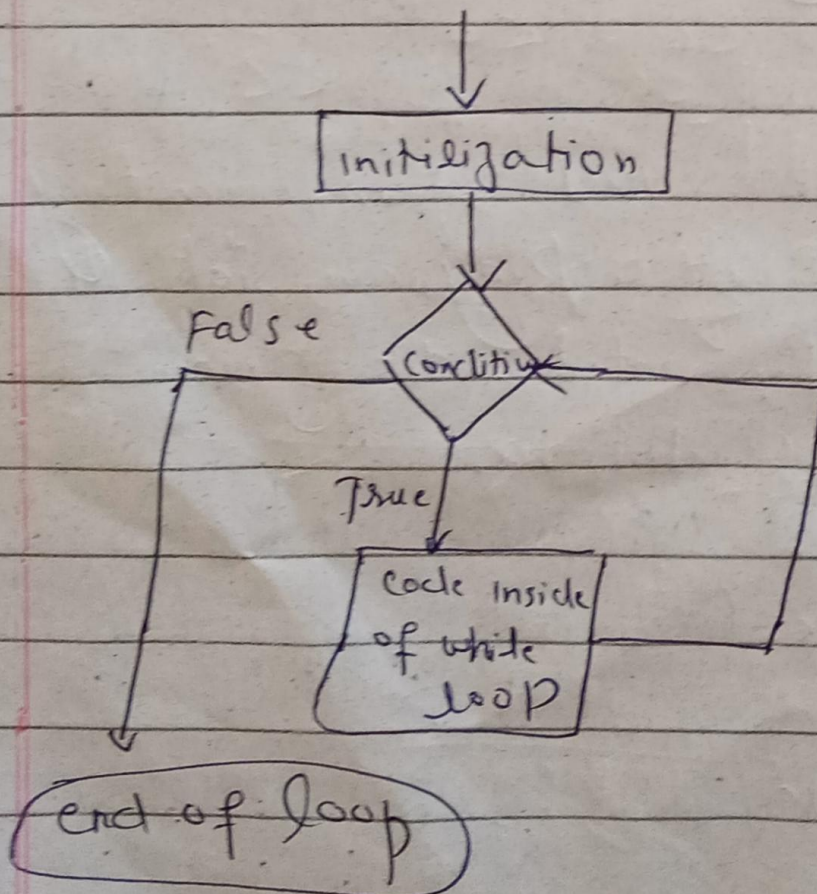 initilization
False
Condition
True
code inside
of while
loop
end of loop